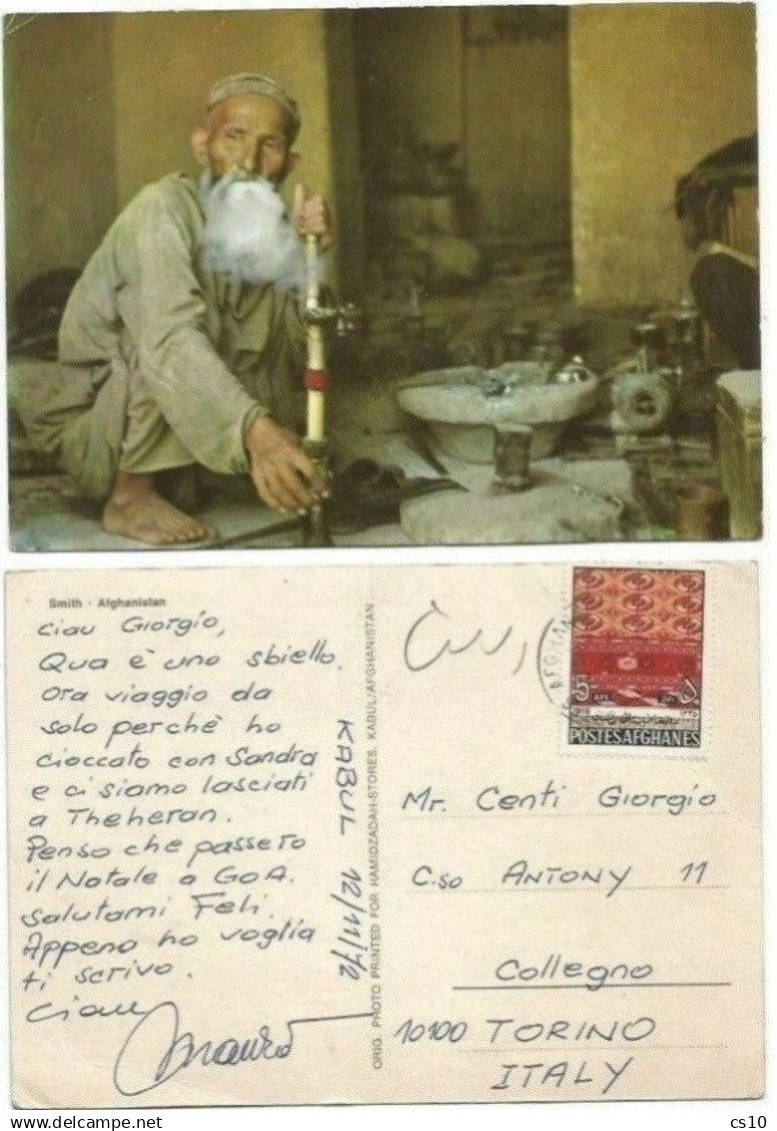 Smith - Afghanistan
Ciau Giorgio,
Qua è uno sbiello.
Ora viaggio da
solo perchè ho
cioccato con Sandra
e ci siamo lasciati
a Theheran.
Penso che passerò
il Natale a GOA.
Salutami Feli.
Appena ho voglia
ti scrivo.
Ciau
KABUL 12/11/72
ORIG. PHOTO PRINTED FOR HAMIDZADAH-STORES, KABUL/AFGHANISTAN
AFGHAN
5
AFS
۵
۱۳۴۵
POSTES AFGHANES
Mr. Centi Giorgio
C.so ANTONY 11
Collegno
10100 TORINO
ITALY
www.delcampe.net
cs10